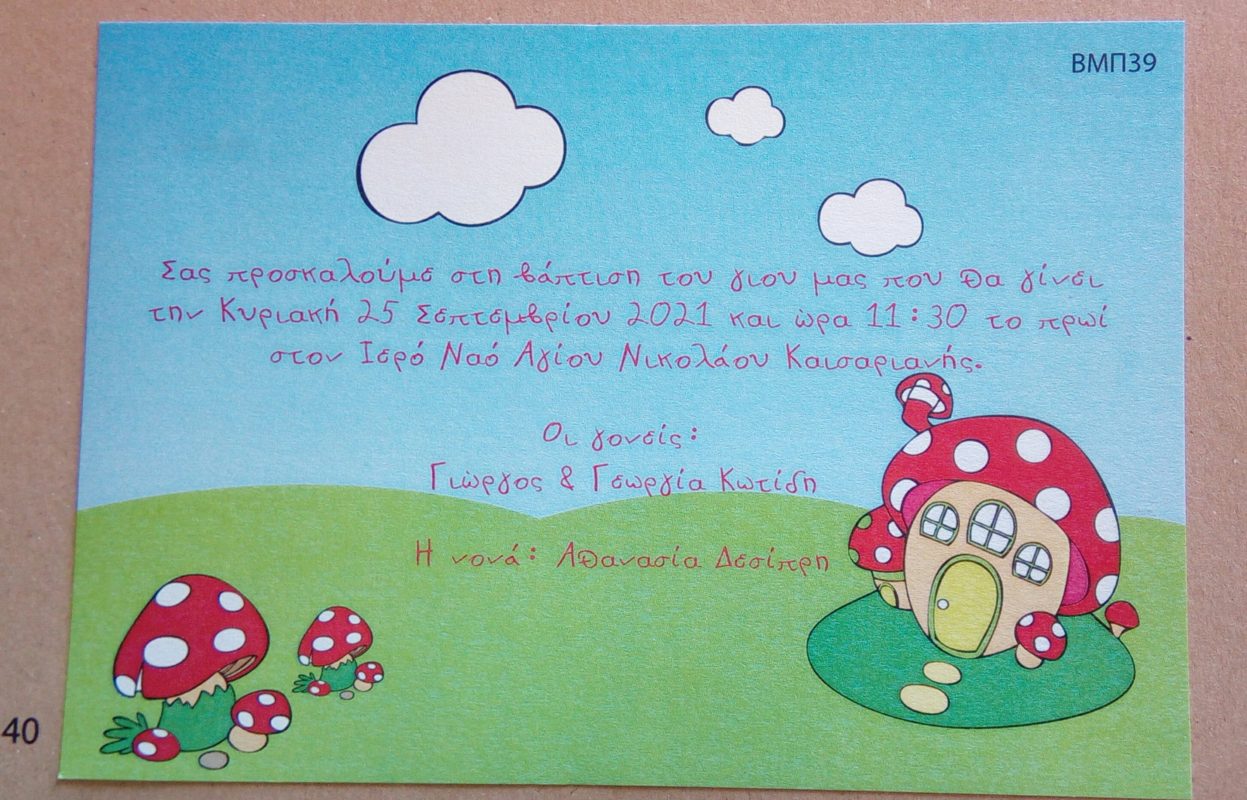 ΒΜΠ39
Σας προσκαλούμε στη βάπτιση του γιου μας που θα γίνει
την Κυριακή 25 Σεπτεμβρίου 2021 και ώρα 11:30 το πρωί
στον Ιερό Ναό Αγίου Νικολάου Καισαριανής.
Οι γονείς:
Γιώργος & Γεωργία Κωτίδη
Η νονά: Αθανασία Δεσίπρη
40